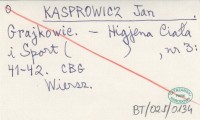 O KASPROWICZ Jan .
Grajkowie. – Higjena Ciała
i Sport ( ) , nr 3:
41-42. CBG
Wiersz.
BT/025/0134